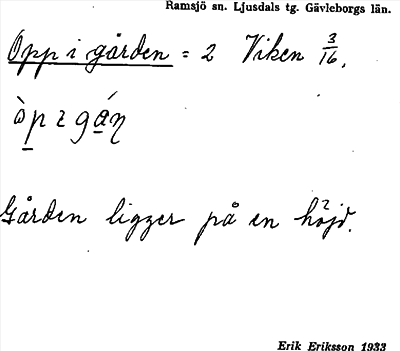 Ramsjö sn. Ljusdals tg. Gävleborgs län.
Opp i gården = 2 Viken 3/16.
òp ɿ gáṇ
Gården ligger på en höjd.
Erik Eriksson 1933